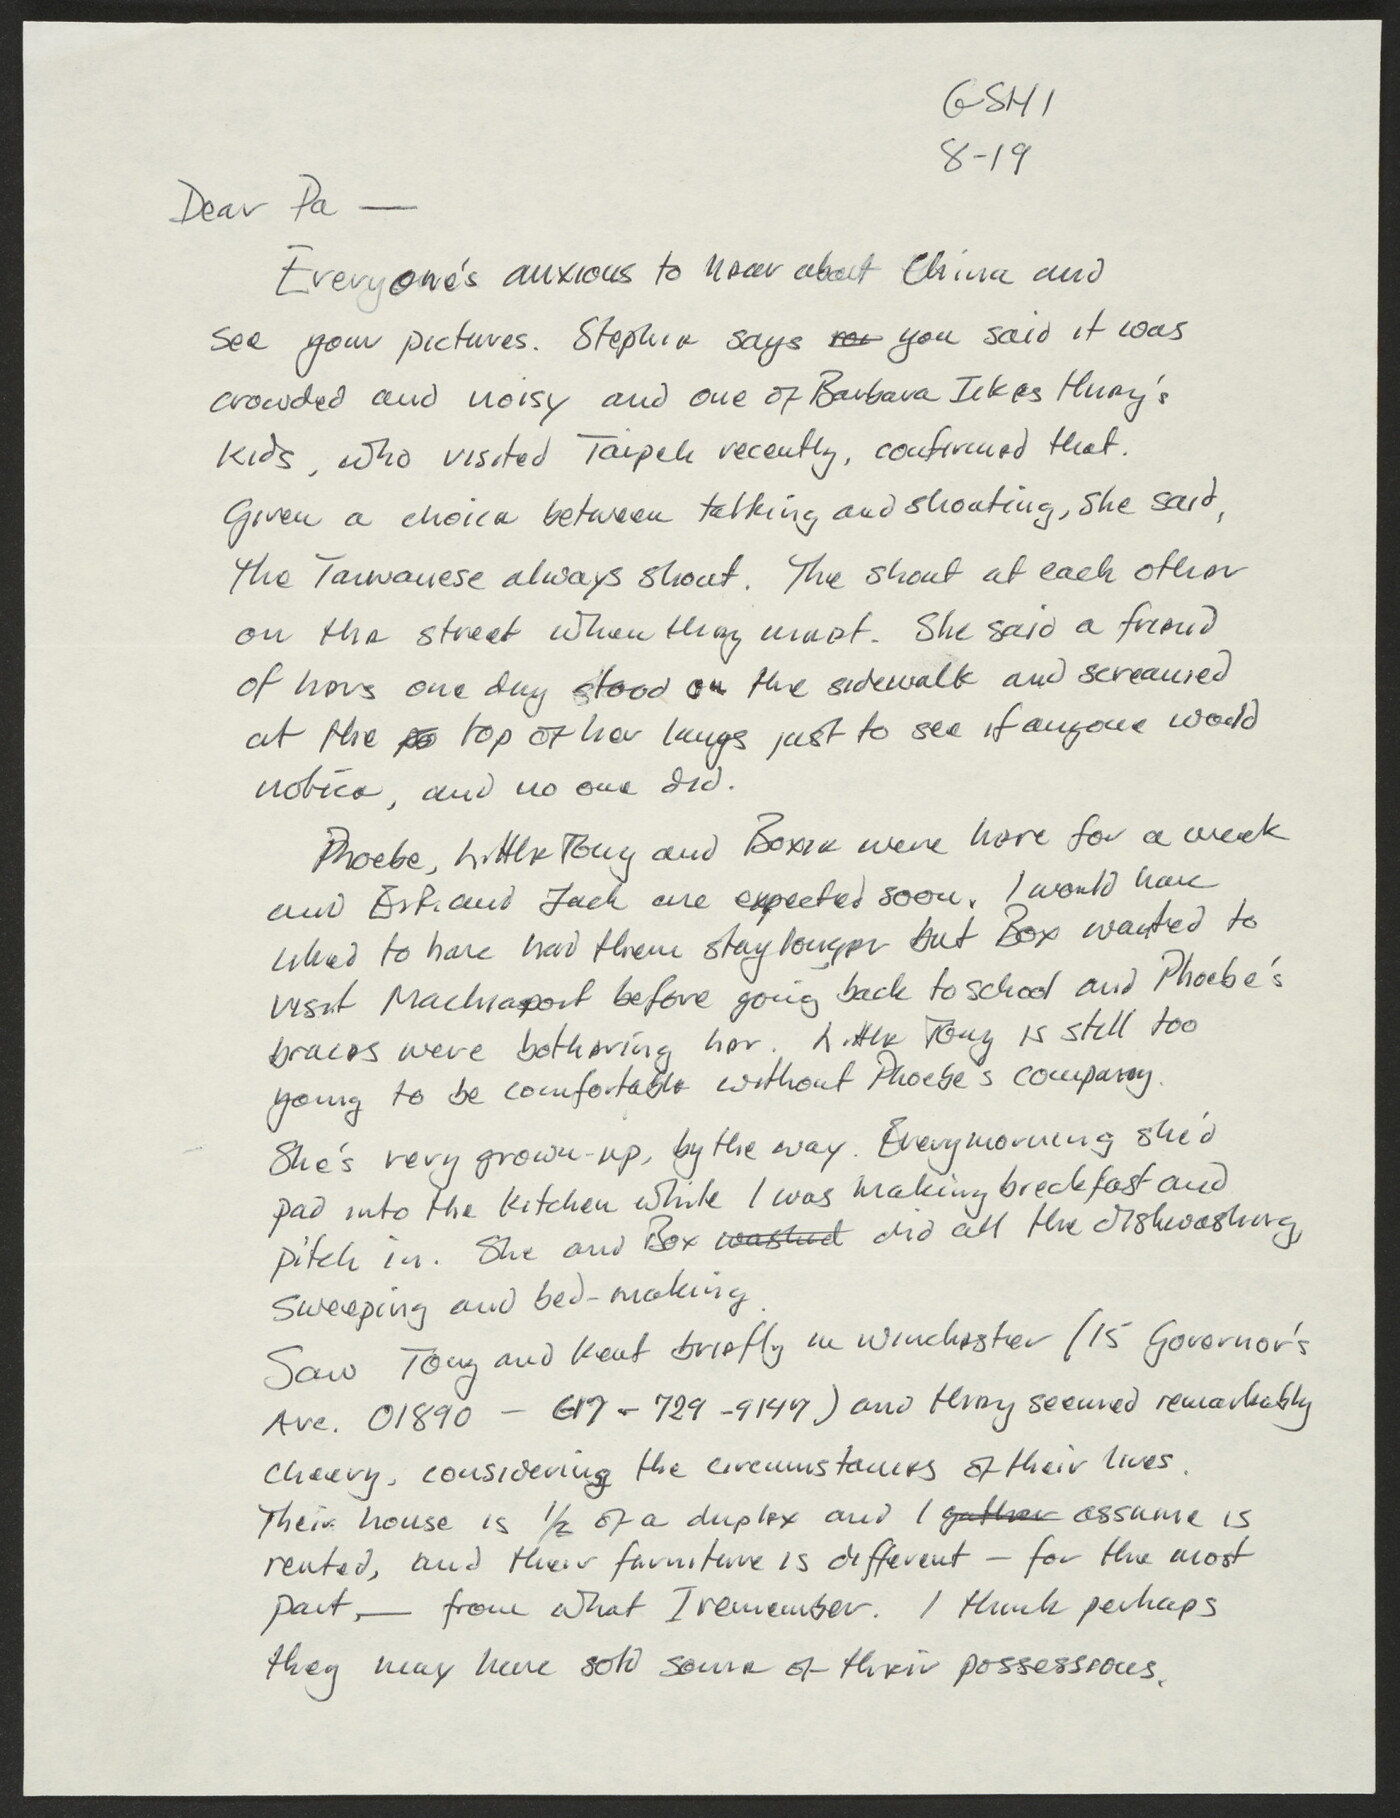 GSHI
8-19
Dear Pa —
Everyone's anxious to hear about China and
see your pictures. Stephen says you said it was
crowded and noisy and one of Barbara Ickes
kids, who visited Taipeh recently, confirmed that.
Given a choice between talking and shouting, she said,
the Taiwanese always shout. The shout at each other
on the street when they meet. She said a friend
of hers one day stood on the sidewalk and screamed
at the top of her lungs just to see if anyone would
notice, and no one did.
Phoebe, Little Tony and Boxer were here for a week
and and Jack are expected soon. I would have
liked to have had them stay longer but Box wanted to
visit Machiasport before going back to school and Phoebe's
braces were bothering her. Little Tony is still too
young to be comfortable without Phoebe's company.
She's very grown-up, by the way. Every morning she'd
pad into the kitchen while I was making breakfast and
pitch in. She and Box washed did all the dishwashing,
sweeping and bed-making.
Saw Tony and Kent briefly in Winchester (15 Governor's
Ave. 01890 — 617 - 729 - 9147) and they seemed remarkably
cheery, considering the circumstances of their lives.
Their house is 1/2 of a duplex and I gather assume is
rented, and their furniture is different — for the most
part, — from what I remember. I think perhaps
they may have sold some of their possessions.